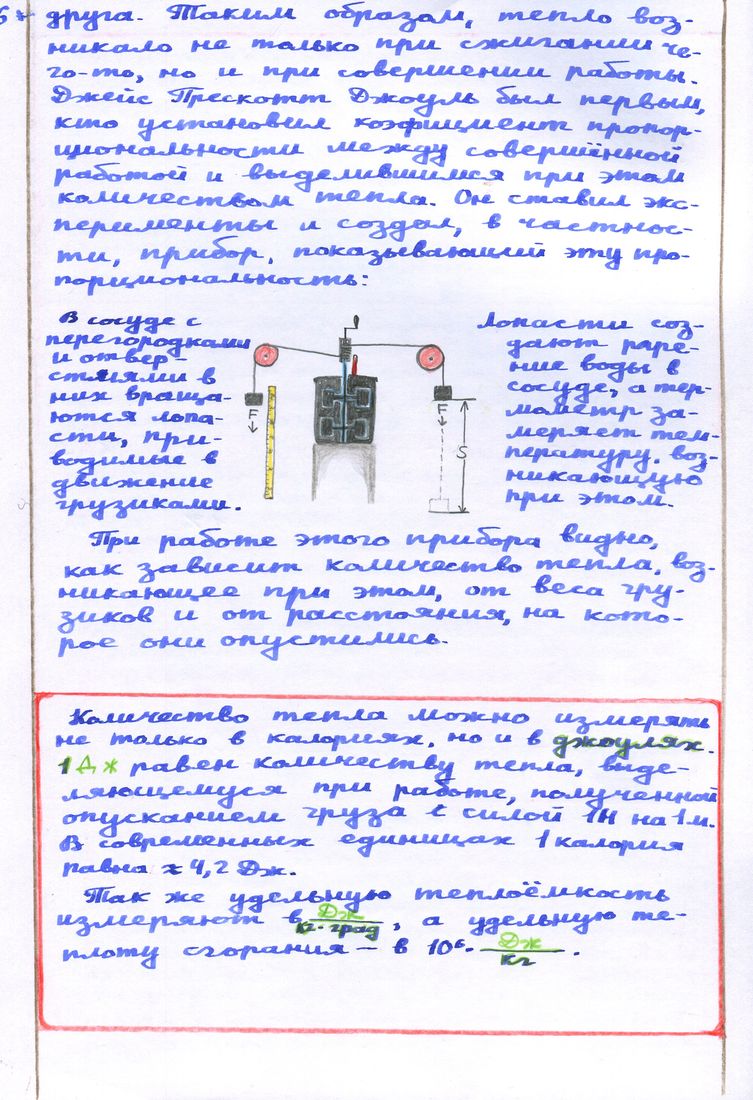 друга. Таким образом, тепло воз-
никало не только при сжигании че-
го-то, но и при совершении работы.
Джейс Прескотт Джоуль был первым,
кто установил коэфициент пропор-
циональности между совершённой
работой и выделившимся при этом
количеством тепла. Он ставил экс-
перименты и создал, в частнос-
ти, прибор, показывающий эту про-
порциональность:
В сосуде с
перегородками
и отвер-
стиями в
них враща-
ются лопа-
сти, при-
водимые в
движение
грузиками.
F
F
S
Лопасти соз-
дают трре-
ние воды в
сосуде, а тер-
мометр за-
меряет тем-
пературу, воз-
никающую
при этом.
При работе этого прибора видно,
как зависит количество тепла, воз-
никающее при этом, от веса гру-
зиков и от расстояния, на кото-
рое они опустились.
Количество тепла можно измерять
не только в калориях, но и в джоулях.
1 Дж равен количеству тепла, выде-
ляющемуся при работе, полученной
опусканием груза с силой 1Н на 1м.
В современных единицах 1 калория
равна ≈ 4,2 Дж.
Так же удельную теплоёмкость
измеряют в Дж/кг·град, а удельную те-
плоту сгорания — в 10⁶· Дж/кг.